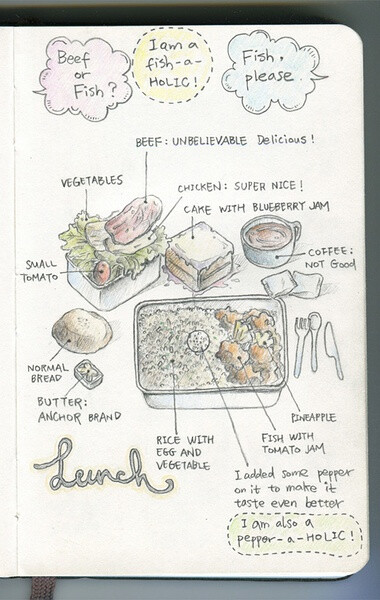 Beef
or
Fish?
I am a
fish-a-
HOLIC!
Fish,
please.
BEEF: UNBELIEVABLE Delicious!
VEGETABLES
CHICKEN: SUPER NICE!
CAKE WITH BLUEBERRY JAM
SMALL
TOMATO
COFFEE:
NOT GooD
NORMAL
BREAD
BUTTER:
ANCHOR BRAND
PINEAPPLE
RICE WITH
EGG AND
VEGETABLE
FISH WITH
TOMATO JAM
I added some pepper
on it to make it
taste even better
Lunch
I am also a
pepper-a-HOLIC!